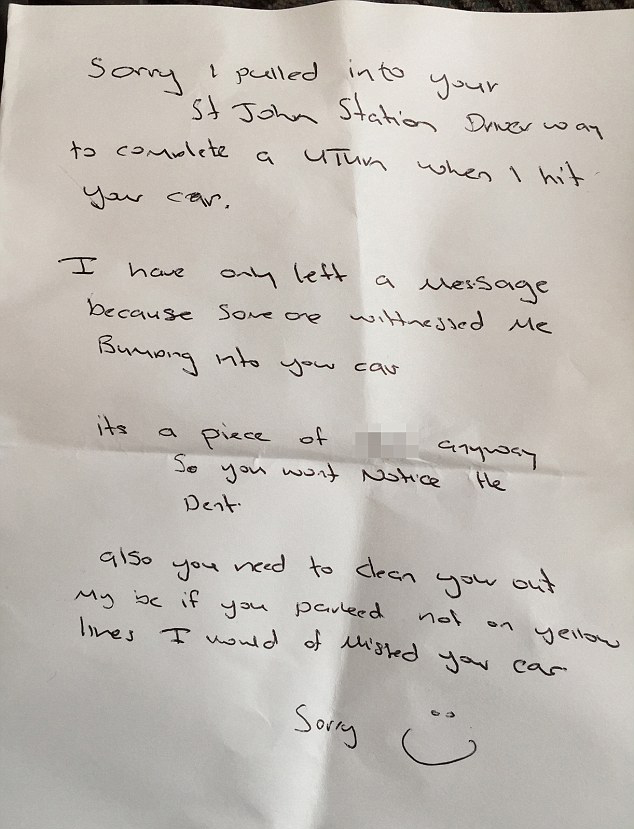 Sorry I pulled into your
St John Station Driver way
to complete a UTurn when I hit
your car.
I have only left a Message
because some one wittnessed Me
Bumping into your car
its a piece of anyway
So you wont Notice the
Dent.
also you need to clean your out
My be if you parked not on yellow
lines I would of Missed your car
Sorry